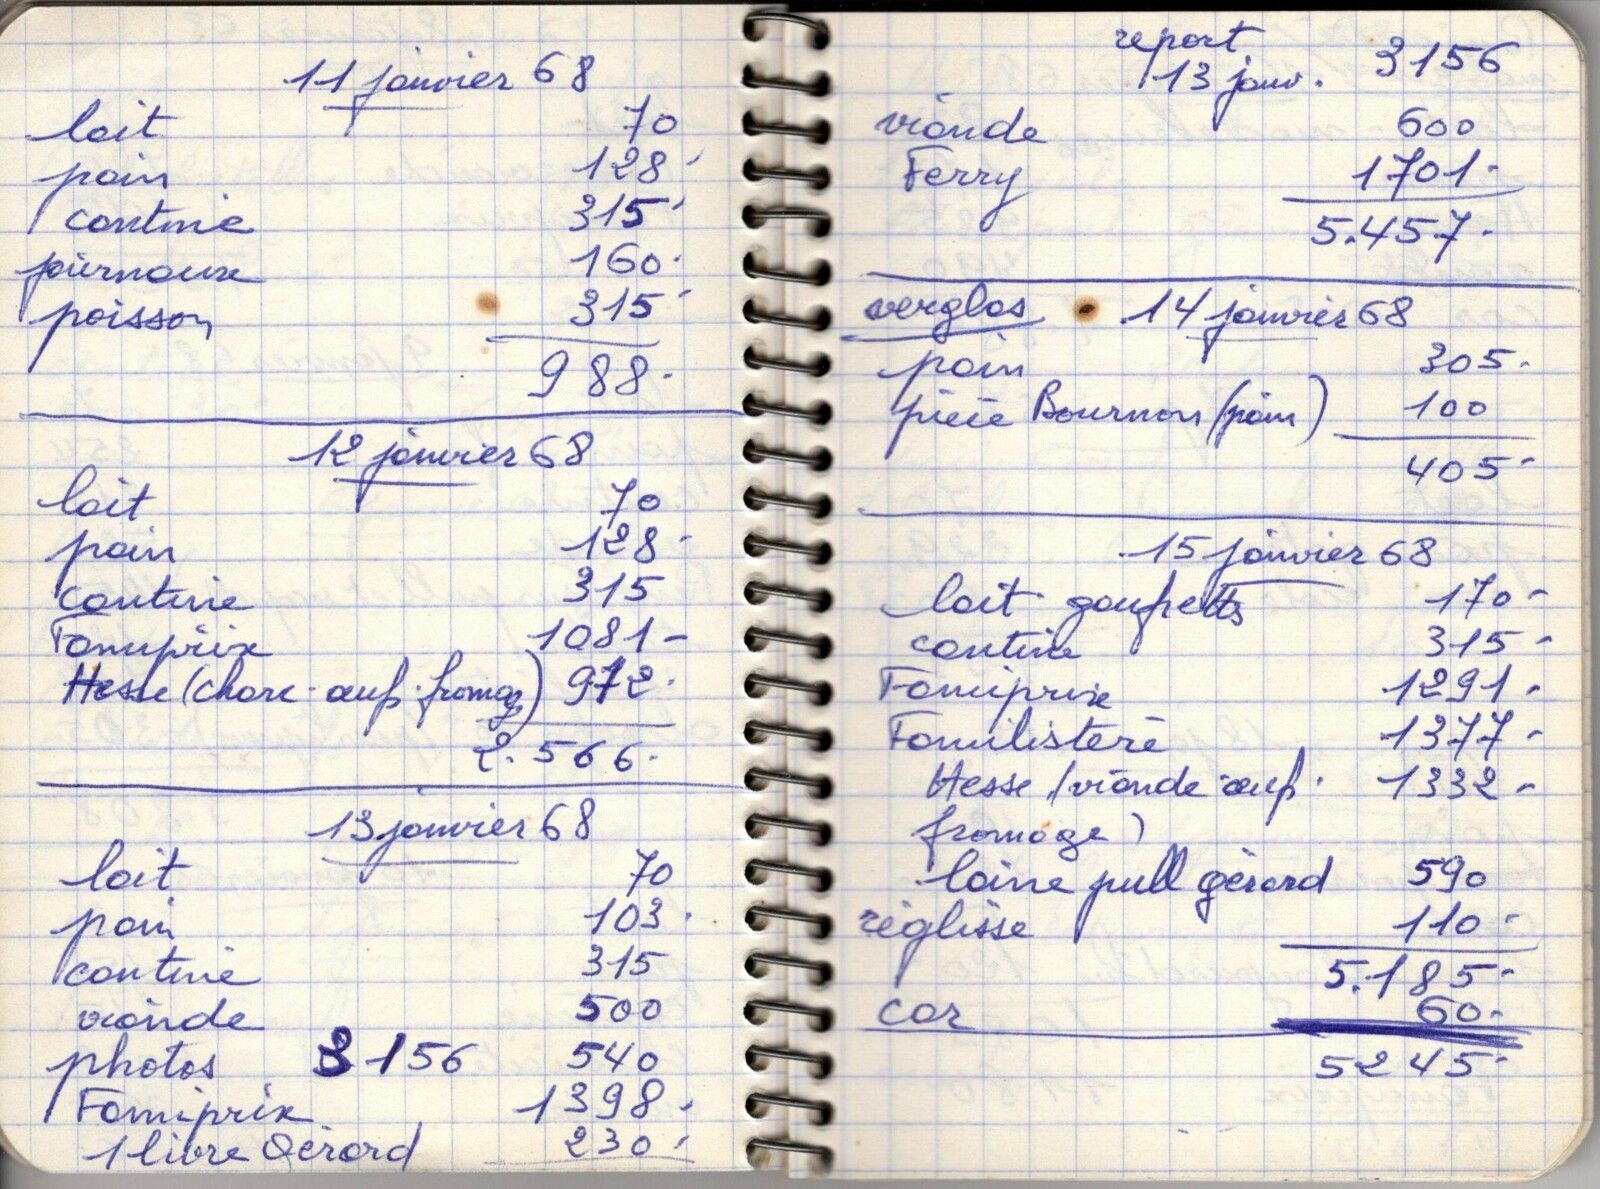 11 janvier 68
lait 70
pain 128.
cantine 315.
journaux 160.
poisson 315.
988.
12 janvier 68
lait 70
pain 128.
cantine 315
Famiprix 1081-
Hesse (charc. œuf. fromage) 972.
2.566.
13 janvier 68
lait 70
pain 103.
cantine 315
viande 500
photos 3156 540
Famiprix 1398.
1 livre Gérard 230.
report 3156
13 janv.
viande 600
Ferry 1701.
5.457.
verglas 14 janvier 68
pain 305.
pièce Bournon (pain) 100
405.
15 janvier 68
lait gaufrettes 170-
cantine 315-
Famiprix 1291.
Familistère 1377.
Hesse (viande œuf. 1332.
fromage)
laine pull gérard 590
réglisse 110.
5.185.
car 60.
5245.